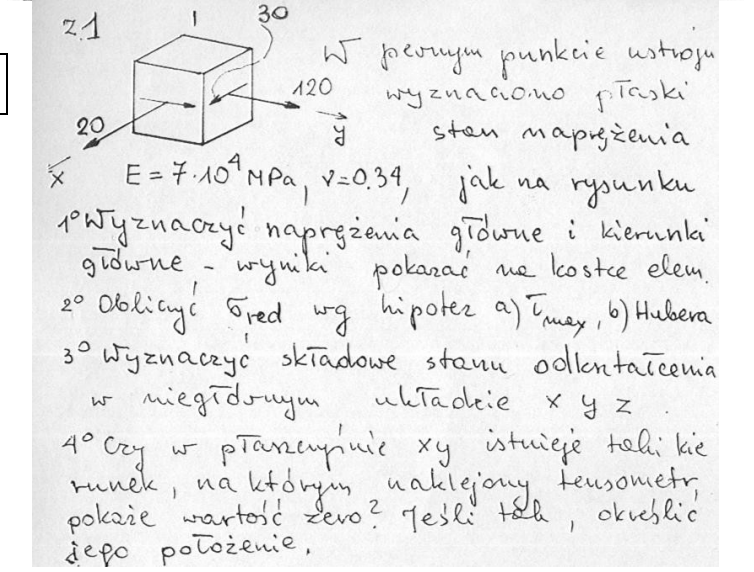 z.1
30
W pewnym punkcie ustroju
120
wyznaczono płaski
20
y
stan naprężenia
x
E = 7·10⁴ MPa, ν=0.34, jak na rysunku
1° Wyznaczyć naprężenia główne i kierunki
główne - wyniki pokazać na kostce elem.
2° Obliczyć σred wg hipotez a) τmax, b) Hubera
3° Wyznaczyć składowe stanu odkształcenia
w niegłównym układzie x y z.
4° Czy w płaszczyźnie xy istnieje taki kie
runek, na którym naklejony tensometr
pokaże wartość zero? Jeśli tak, określić
jego położenie.